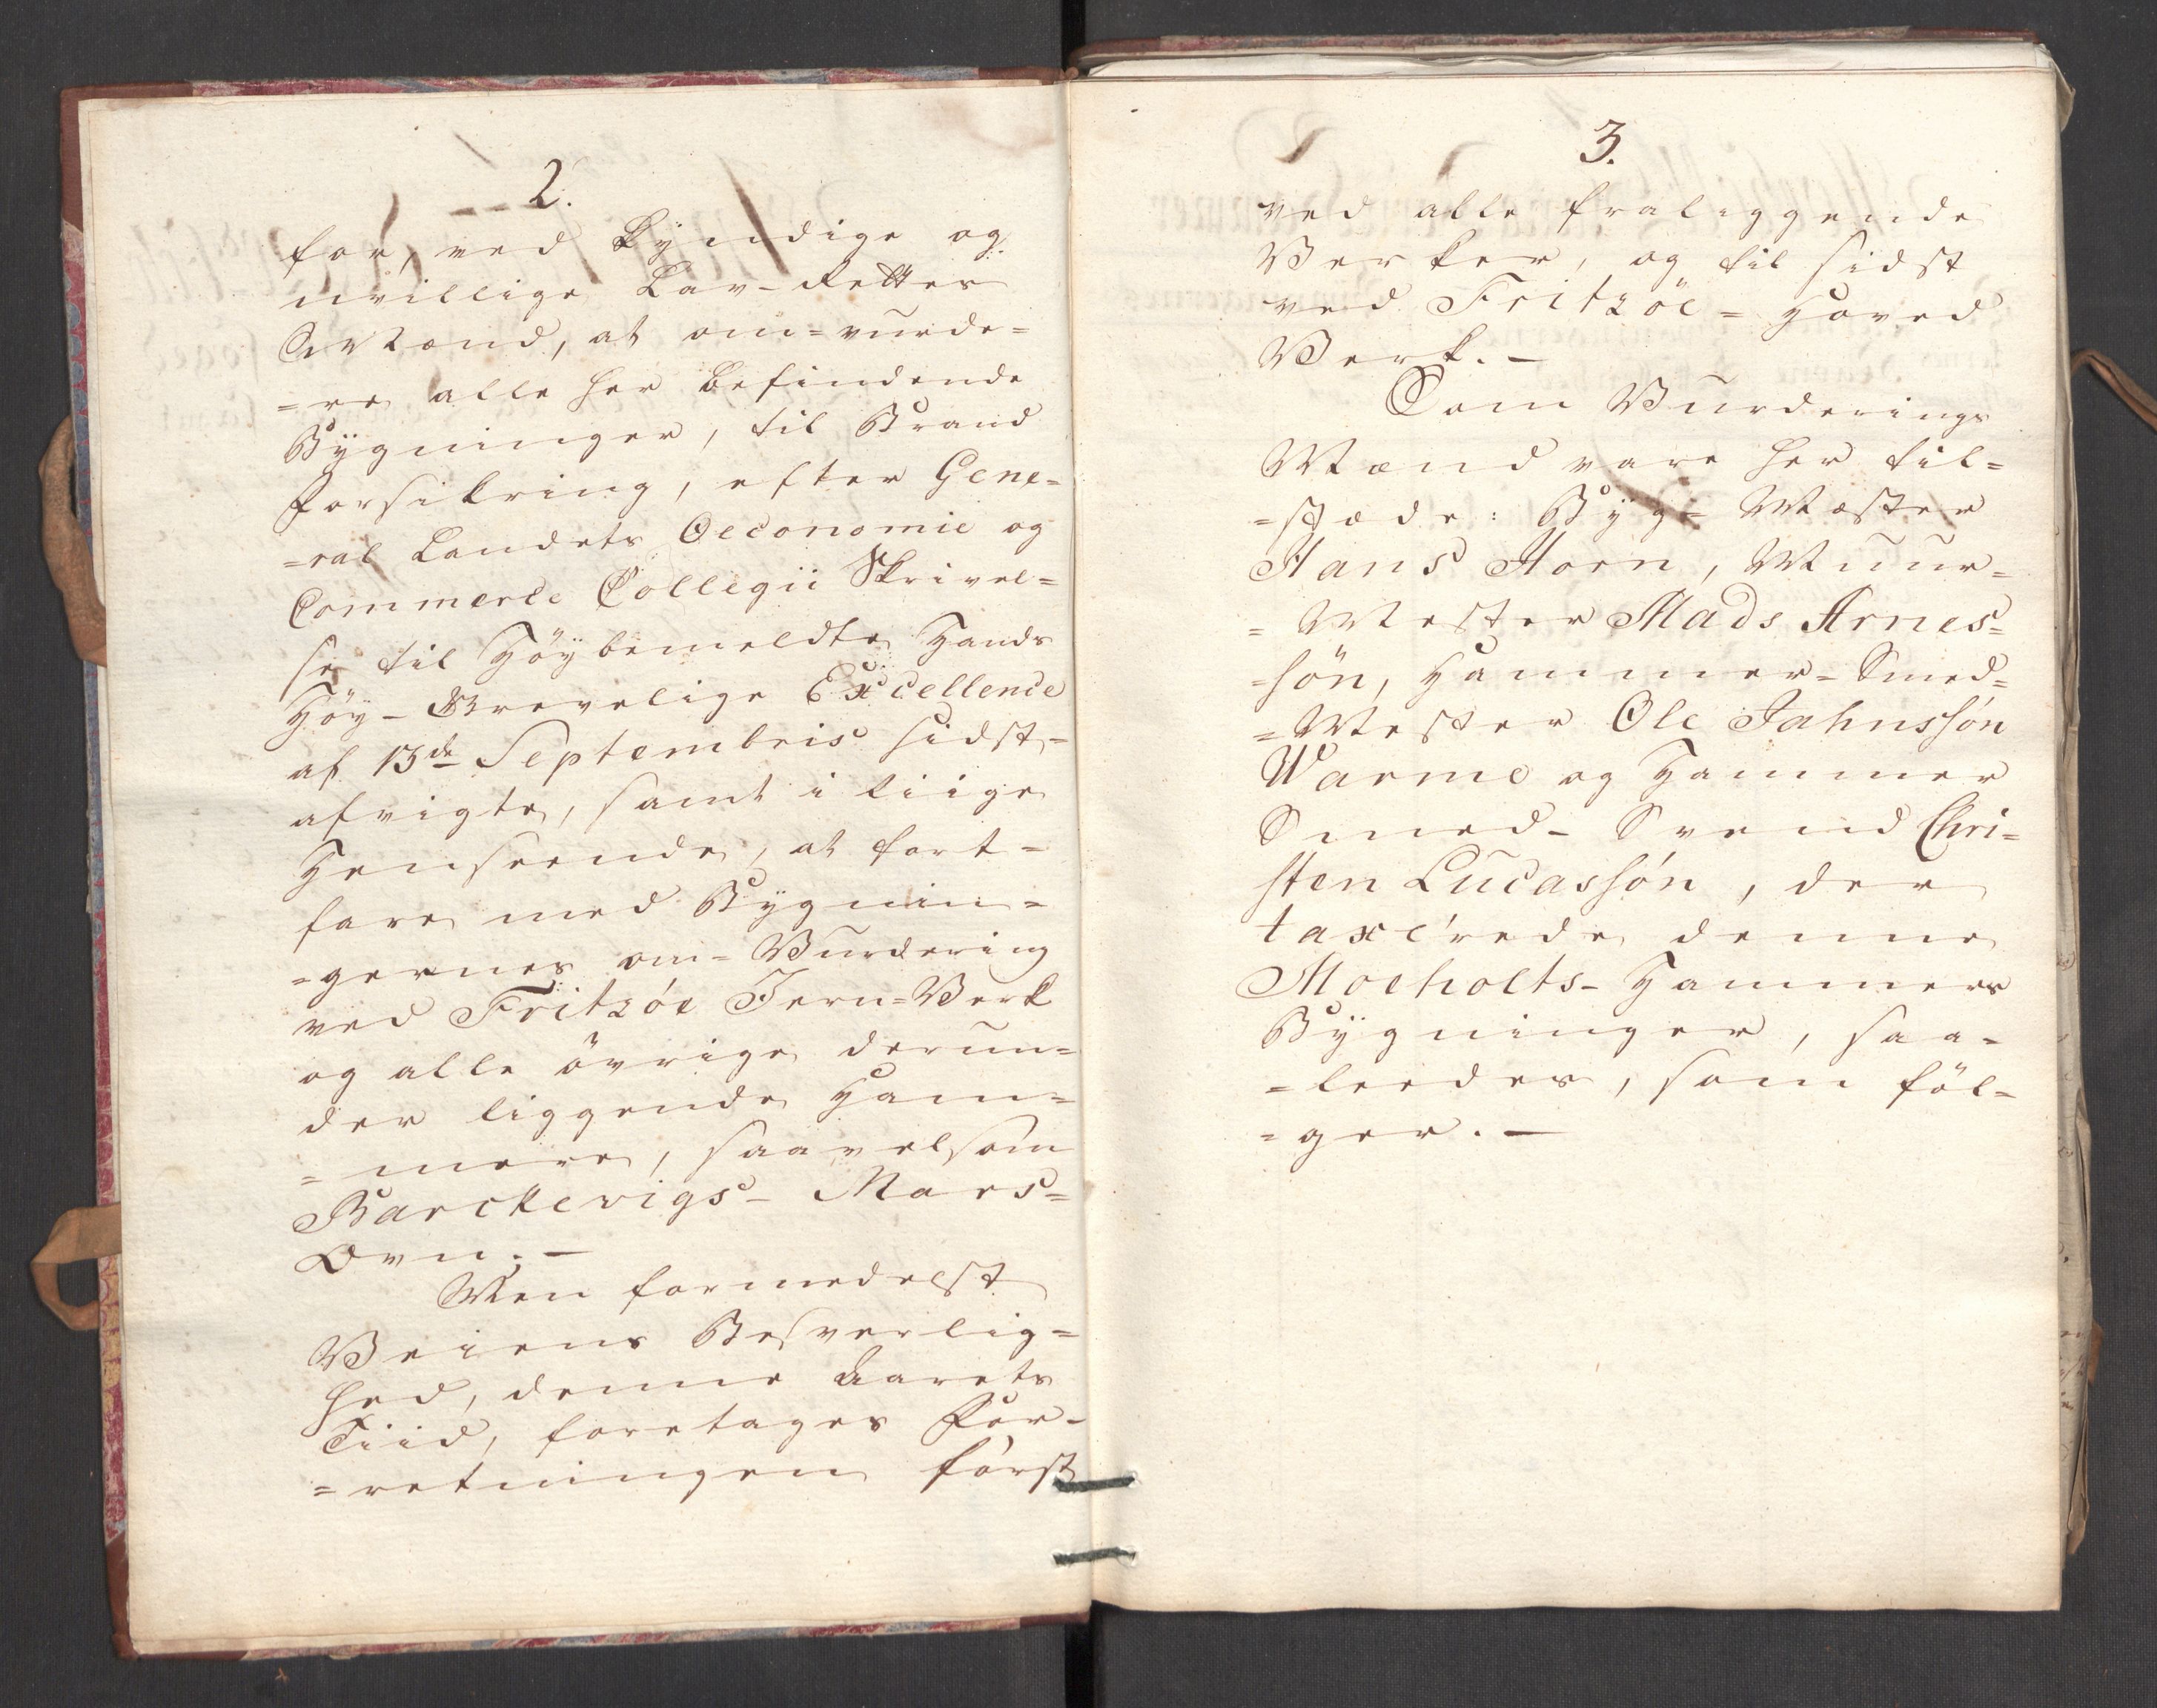 2.
for, ved kyndige og
uvillige Lav-Rettes
Mænd, at om=vurde=
=re alle her befindende
Bÿgninger, til Brand
Forsikring, efter Gene=
=ral Landets Oeconomie og
Commerce Collegii Skrivel=
se til Höÿbemeldte Hands
Höÿ-Grevelige Excellence
af 13de Septembris sidst=
afvigte, samt i liige
Henseende, at fort=
fare med Bÿgnin=
=gernes om=Vurdering
ved Fritzöe Jern=Verk
og alle övrige derun=
der liggende Ham=
=mere, saavelsom
Barckevigs- Mars=
Ovn; —
Men formedelst
Veiens Besverlig=
hed, denne Aarets
Tiid, foretages For-
=retningen först
3.
ved alle fraliggende
Verker, og til sidst
ved Fritzöe = Hoved
Verk. —
Som Vurderings
Mænd vare her til=
=stæde: Bÿg= Mæster
Hans Horn, Muur=
=Mester Mads Arnes=
=sön, Hammer-Smed=
=Mester Ole Jahnssön
Warme og Hammer
Smed- Svend Chri=
sten Lucassön, der
taxérede denne
Moeholts- Hammers
Bÿgninger, saa-
=leedes, som föl=
=ger. —